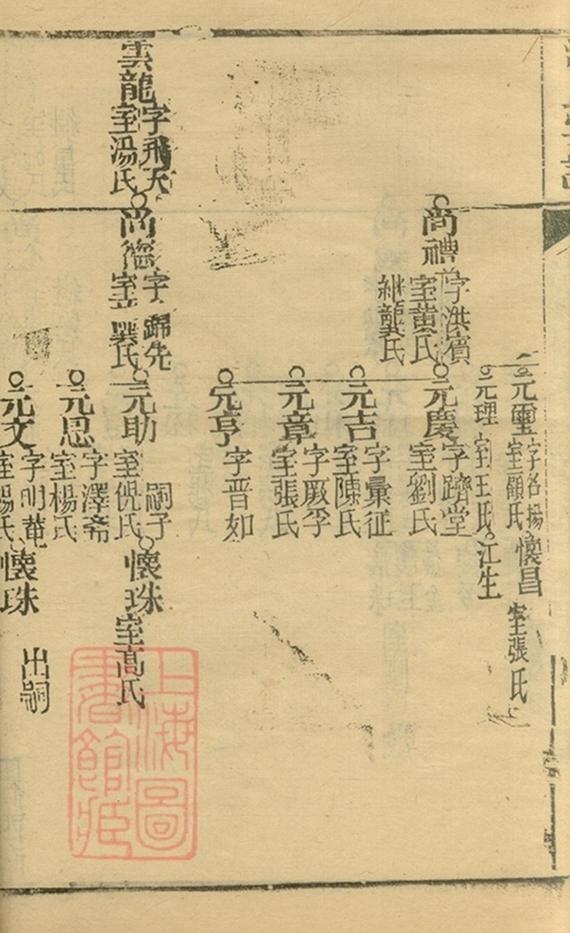 元璽 字名揚 室顧氏
懷昌 室張氏
元理 室王氏
江生
尚禮 字洪濱 室黄氏 繼龔氏
元慶 字躋堂 室劉氏
元吉 字彙征 室陳氏
元章 字厥孚 室張氏
元亨 字晋如
雲龍 字飛天 室湯氏
尚德 字歸先 室
元助 室倪氏 嗣子
懷珠 室高氏
元思 字澤斋 室楊氏
元文 字明菴 室楊氏
懷珠 出嗣
上海圖書館藏